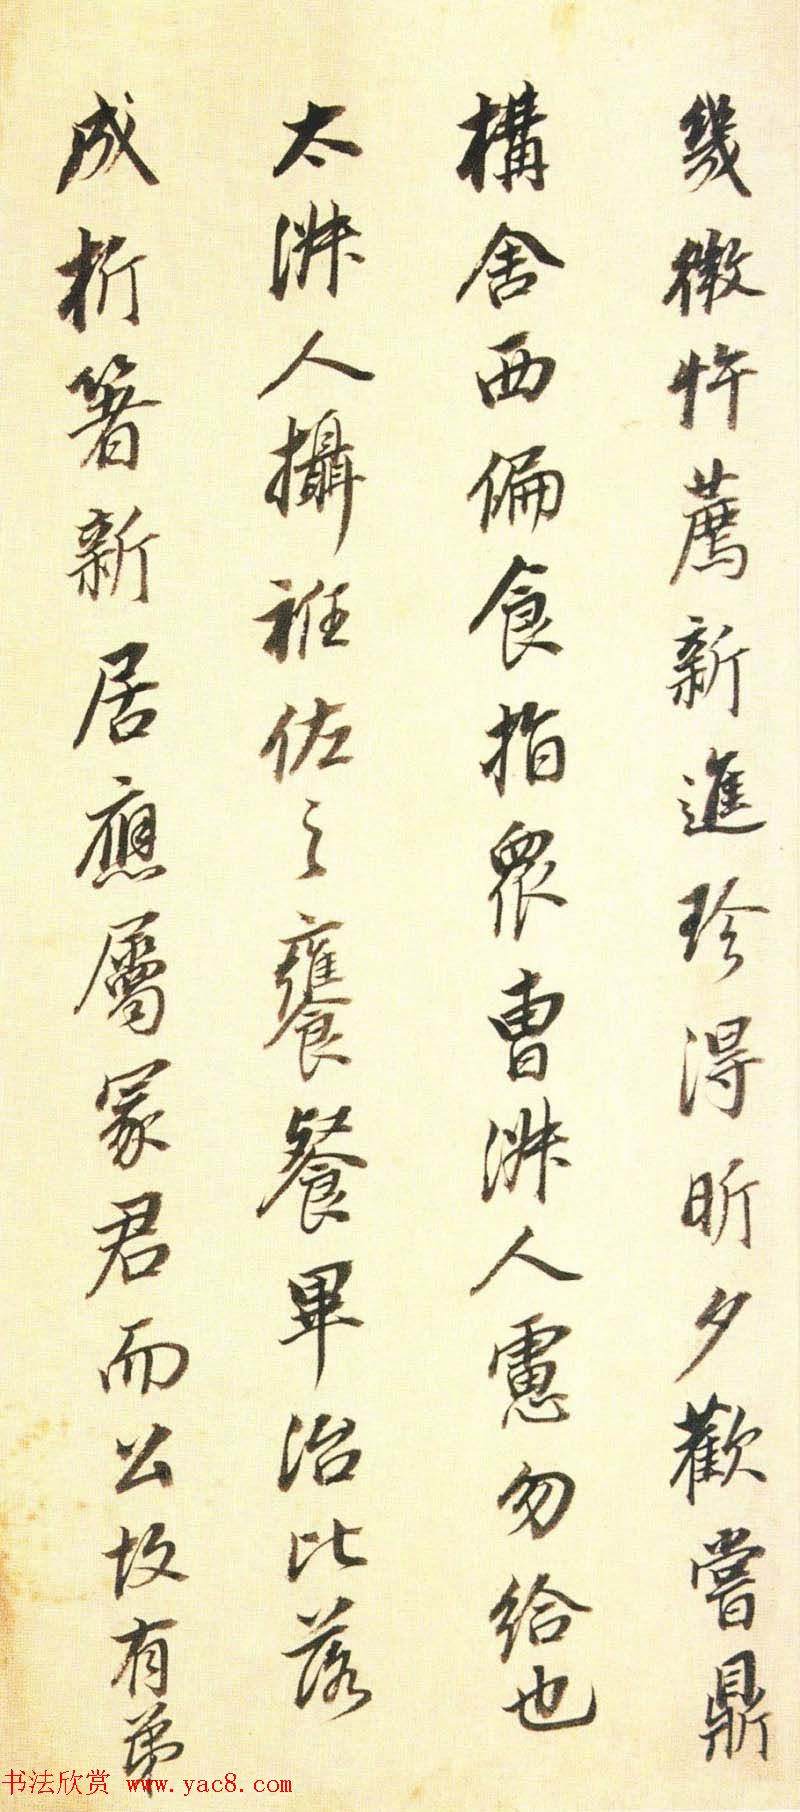 幾微忤薦新進珍得昕夕歡嘗鼎
構舍西偏食指眾曹淑人慮勿給也
太淑人攝衽佐之饔餐畢治比落
成析箸新居應屬冢君而公故有弟
书法欣赏 www.yac8.com